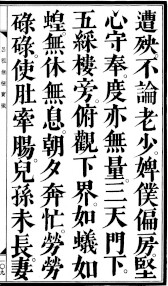 遭殃不論老少婢僕偏房堅
心守奉度亦無量三天門下
五綵樓旁俯觀下界如蟻如
蝗無休無息朝夕奔忙勞勞
碌碌使肚牽腸兒孫未長妻
一〇九